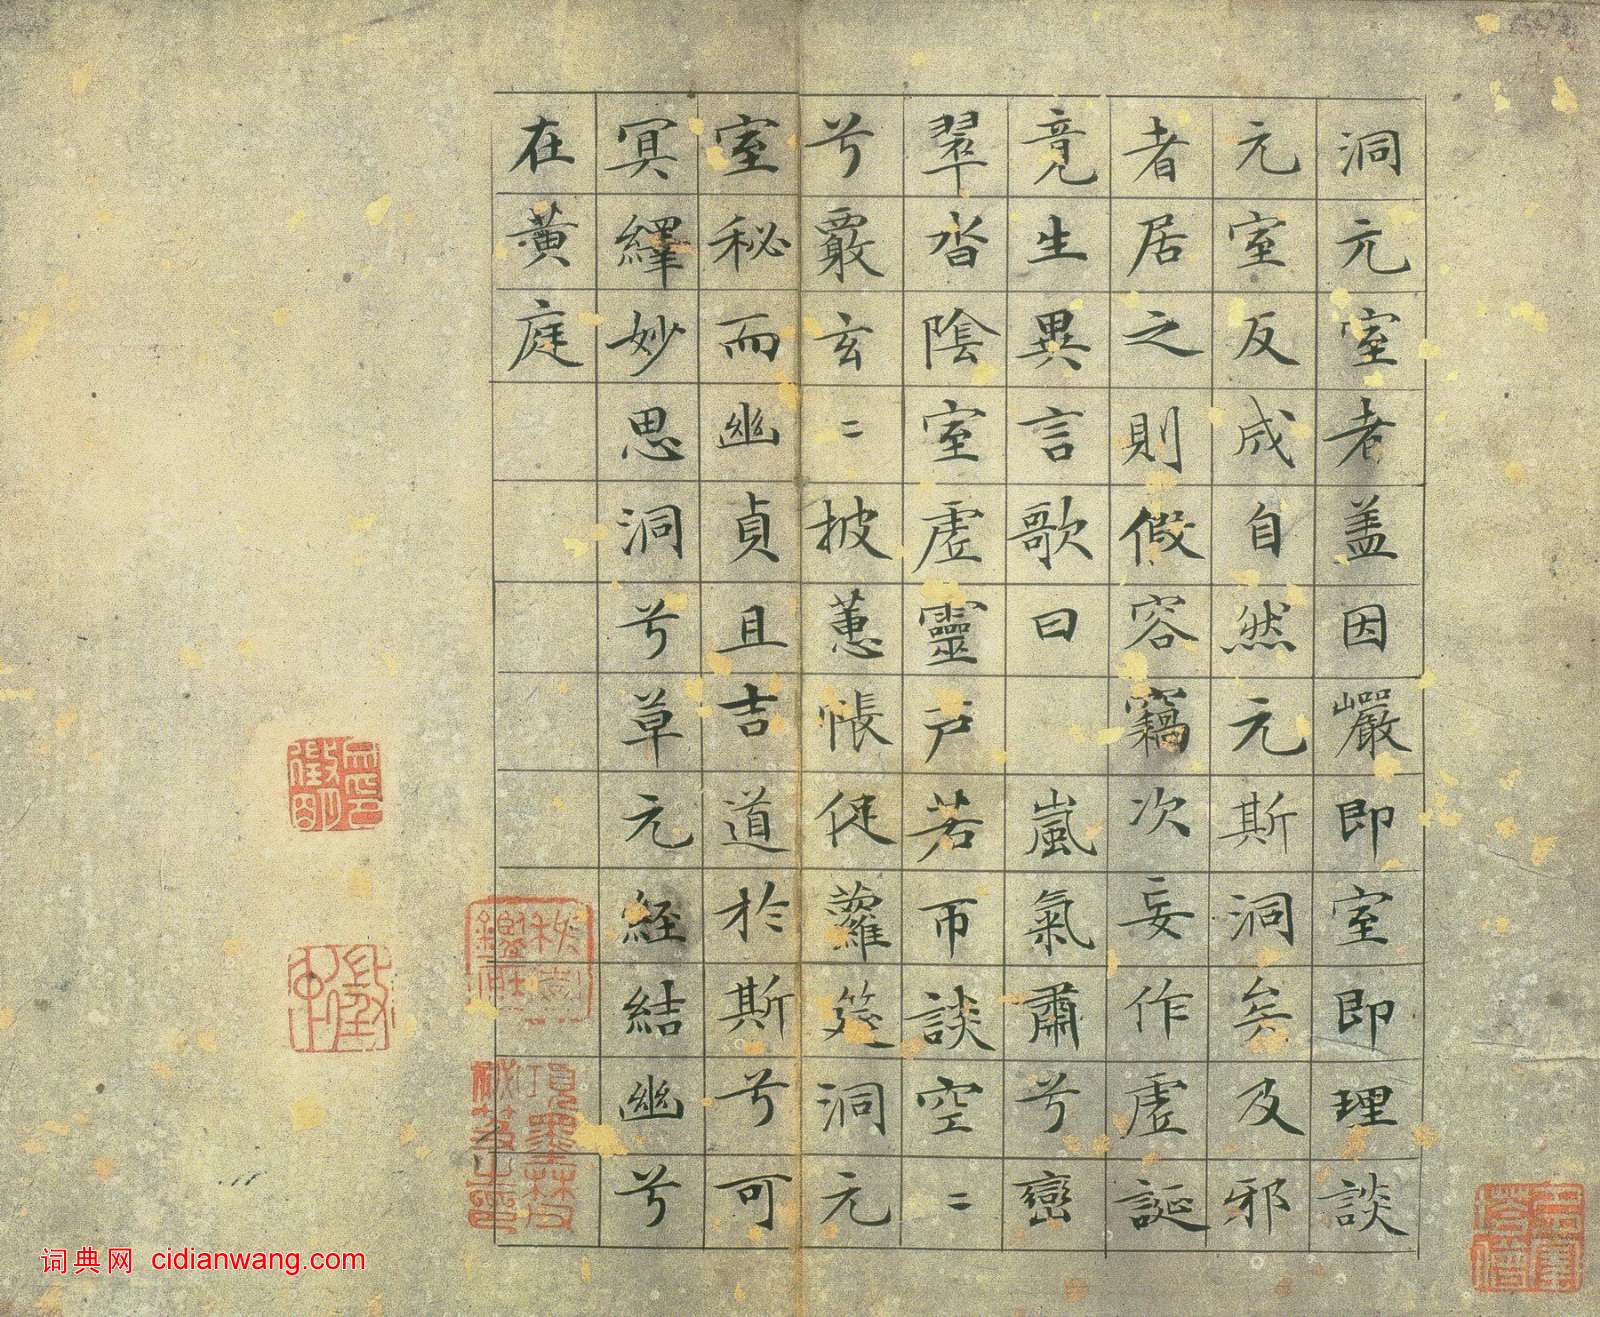 洞元室者盖因巖即室即理談
元室反成自然元斯洞矣及邪
者居之則假容竊次妄作虛誕
竟生異言歌曰 嵐氣肅兮巒
翠沓陰室虛靈戶若帀談空〻
兮覈玄〻披蕙帳促蘿筵洞元
室秘而幽貞且吉道於斯兮可
冥繹妙思洞兮草元經結幽兮
在黃庭
項墨林父
秘笈之印
词典网 cidianwang.com